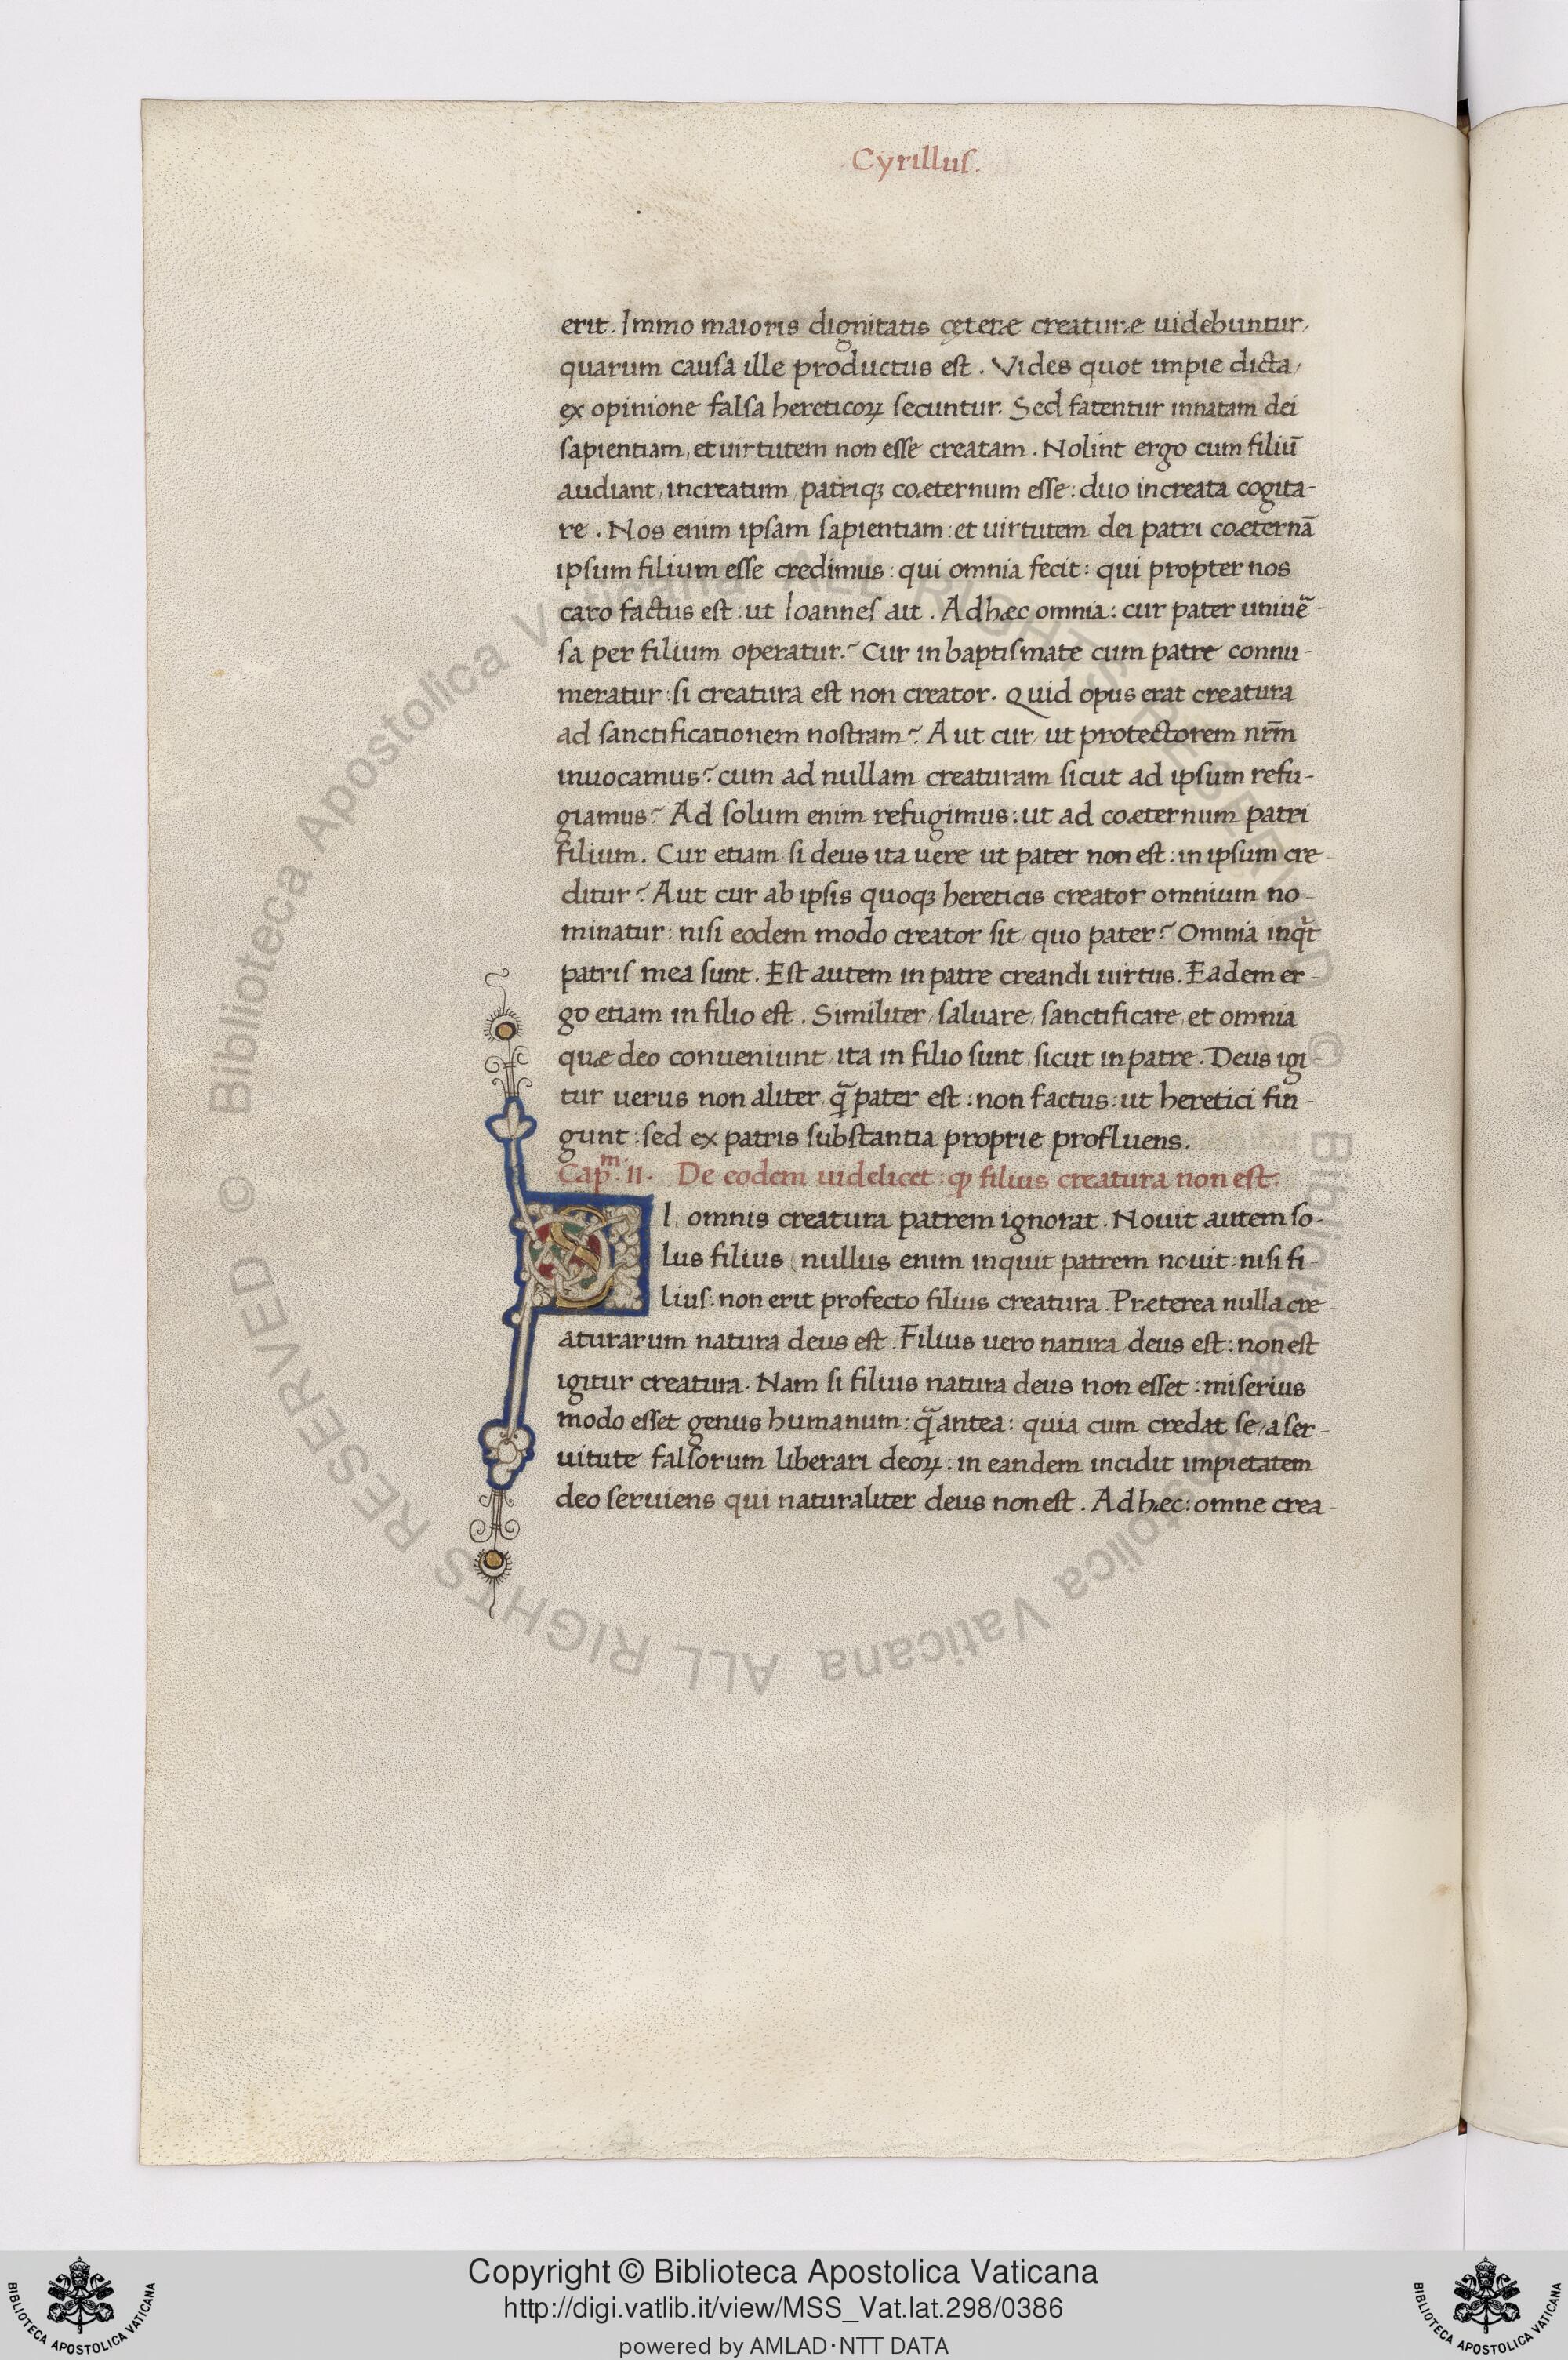 Cyrillus.
erit. Immo maioris dignitatis cęteræ creaturæ uidebuntur,
quarum causa ille productus est. Vides quot impie dicta,
ex opinione falsa hereticoꝝ secuntur. Sed fatentur innatam dei
sapientiam, et uirtutem non esse creatam. Nolint ergo cum filiū
audiant, increatum, patriqꝫ coæternum esse: duo increata cogita-
re. Nos enim ipsam sapientiam: et uirtutem dei patri coæternā
ipsum filium esse credimus: qui omnia fecit: qui propter nos
caro factus est: ut Ioannes ait. Ad hæc omnia: cur pater uniueᷓ-
sa per filium operatur? Cur in baptismate cum patre connu-
meratur: si creatura est non creator. Quid opus erat creatura
ad sanctificationem nostram? Aut cur, ut protectorem nr̄m
inuocamus? cum ad nullam creaturam sicut ad ipsum refu-
giamus? Ad solum enim refugimus: ut ad coæternum patri
filium. Cur etiam, si deus ita uere ut pater non est: in ipsum cre-
ditur? Aut cur ab ipsis quoqꝫ hereticis creator omnium no-
minatur: nisi eodem modo creator sit, quo pater? Omnia inqͥt
patris mea sunt. Est autem in patre creandi uirtus. Eadem er-
go etiam in filio est. Similiter, saluare, sanctificare, et omnia
quæ deo conueniunt, ita in filio sunt, sicut in patre. Deus igi-
tur uerus non aliter, qᷓ pater est: non factus: ut heretici fin-
gunt: sed ex patris substantia proprie profluens.
Capᵐ. II. De eodem uidelicet: ꝙ filius creatura non est.
SI, omnis creatura patrem ignorat. Nouit autem so-
lus filius (nullus enim inquit patrem nouit: nisi fi-
lius: non erit profecto filius creatura. Præterea nulla cre-
aturarum natura deus est. Filius uero natura, deus est: non est
igitur creatura. Nam si filius natura deus non esset: miserius
modo esset genus humanum: qᷓ antea: quia cum credat se, a ser-
uitute falsorum liberari deoꝝ: in eandem incidit impietatem
deo seruiens qui naturaliter deus non est. Ad hæc: omne crea-
© Biblioteca Apostolica Vaticana ALL RIGHTS RESERVED © Biblioteca Apostolica Vaticana ALL RIGHTS RESERVED
Copyright © Biblioteca Apostolica Vaticana
http://digi.vatlib.it/view/MSS_Vat.lat.298/0386
powered by AMLAD·NTT DATA
BIBLIOTECA APOSTOLICA VATICANA
BIBLIOTECA APOSTOLICA VATICANA